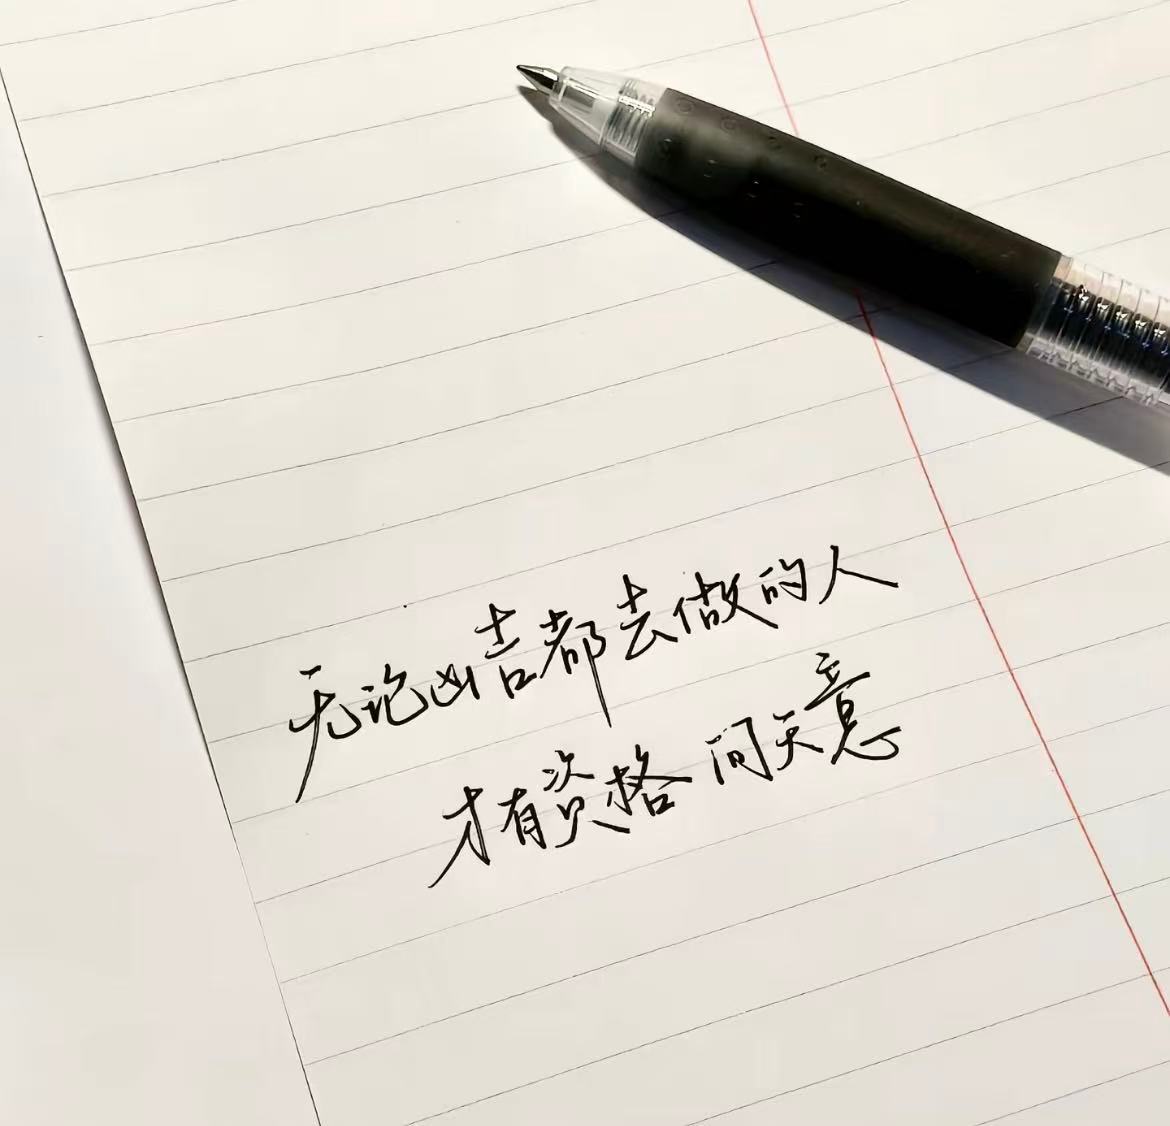 无论凶吉都去做的人
才有资格问天意